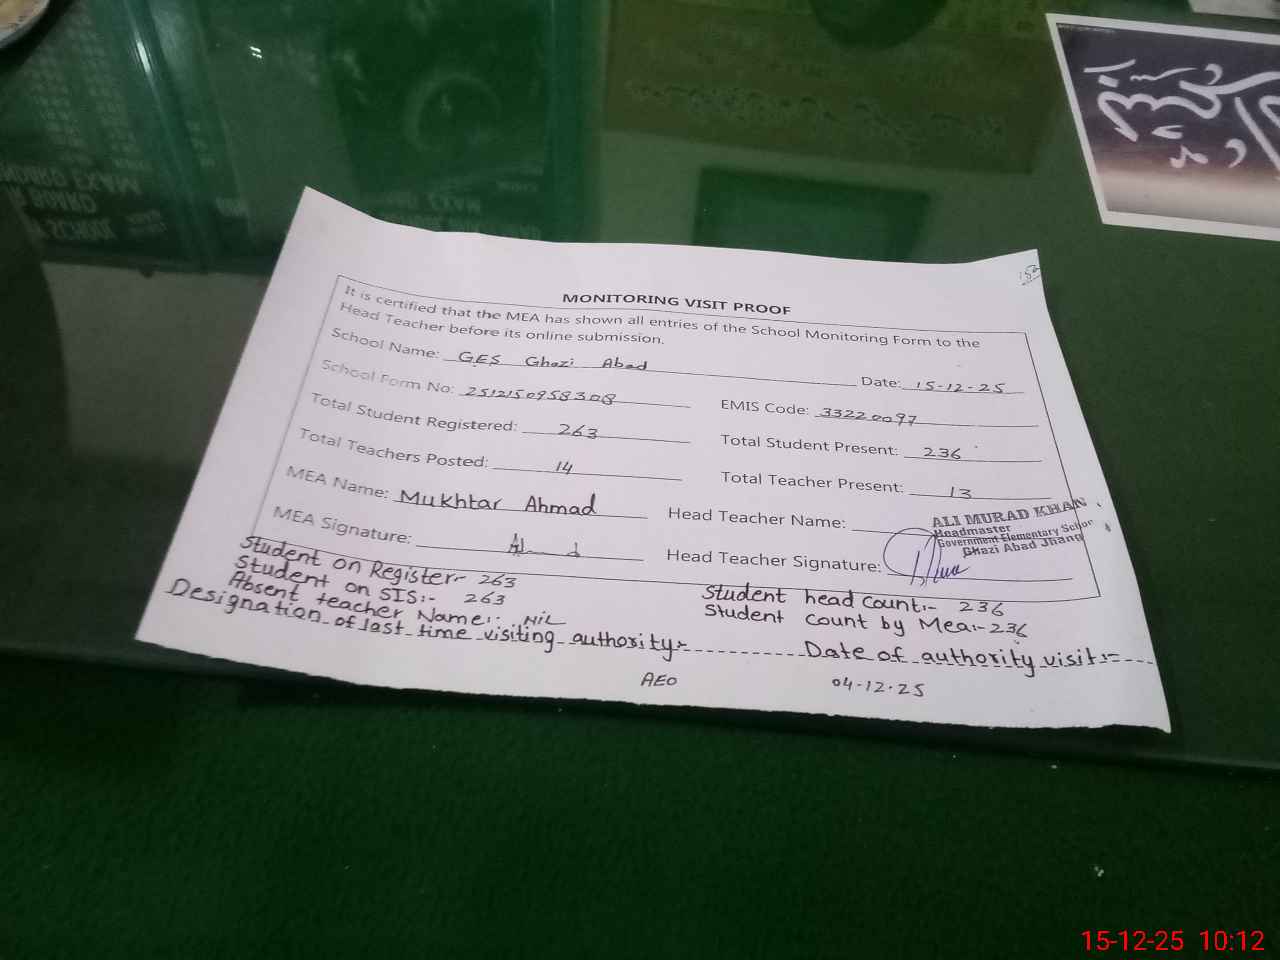 MONITORING VISIT PROOF
It is certified that the MEA has shown all entries of the School Monitoring Form to the
Head Teacher before its online submission.
School Name: GES Ghazi Abad Date: 15-12-25
School Form No: 2512150958308 EMIS Code: 33220097
Total Student Registered: 263 Total Student Present: 236
Total Teachers Posted: 14 Total Teacher Present: 13
MEA Name: Mukhtar Ahmad Head Teacher Name:
ALI MURAD KHAN
Headmaster
Government Elementary School
Ghazi Abad Jhang
MEA Signature: Head Teacher Signature:
Student on Register:- 263 Student head count:- 236
Student on SIS:- 263 Student count by Mea:- 236
Absent teacher Name:- NIL
Designation of last time visiting authority:- Date of authority visit:-
AEO 04-12-25
15-12-25 10:12